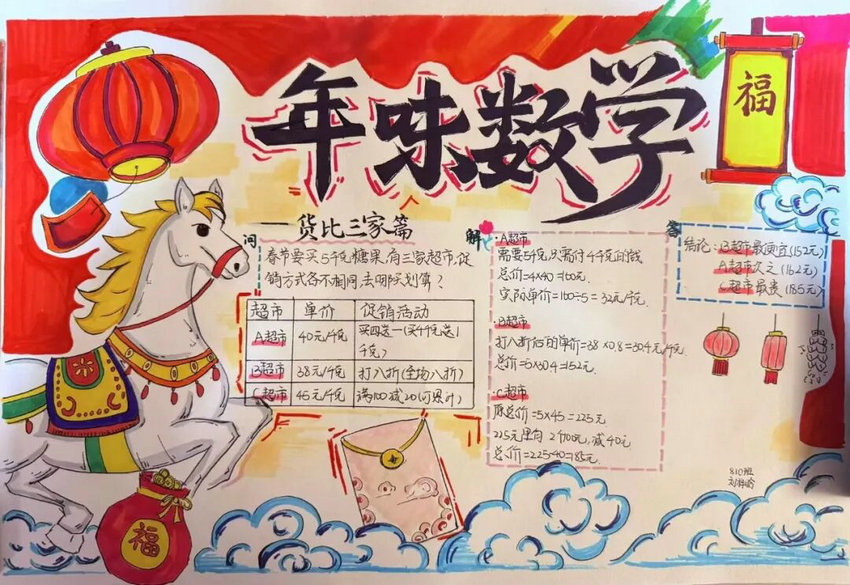 年味数学
福
——货比三家篇
问
春节要买5千克糖果,有三家超市,促
销方式各不相同,去哪买划算?
超市 单价 促销活动
A超市 40元/千克 买四送一(买4千克送1
千克)
B超市 38元/千克 打八折(全场八折)
C超市 45元/千克 满100减20(可累计)
解
·A超市
需要5千克,只需付4千克的钱
总价=4×40=160元.
实际单价=160÷5=32元/千克
·B超市
打八折后的单价=38×0.8=30.4元/千克
总价=5×30.4=152元.
·C超市
原总价=5×45=225元
225元里有2个100元,减40元
总价=225-40=185元.
答
结论:B超市最便宜(152元)
A超市次之(162元)
C超市最贵(185元)
福
810班